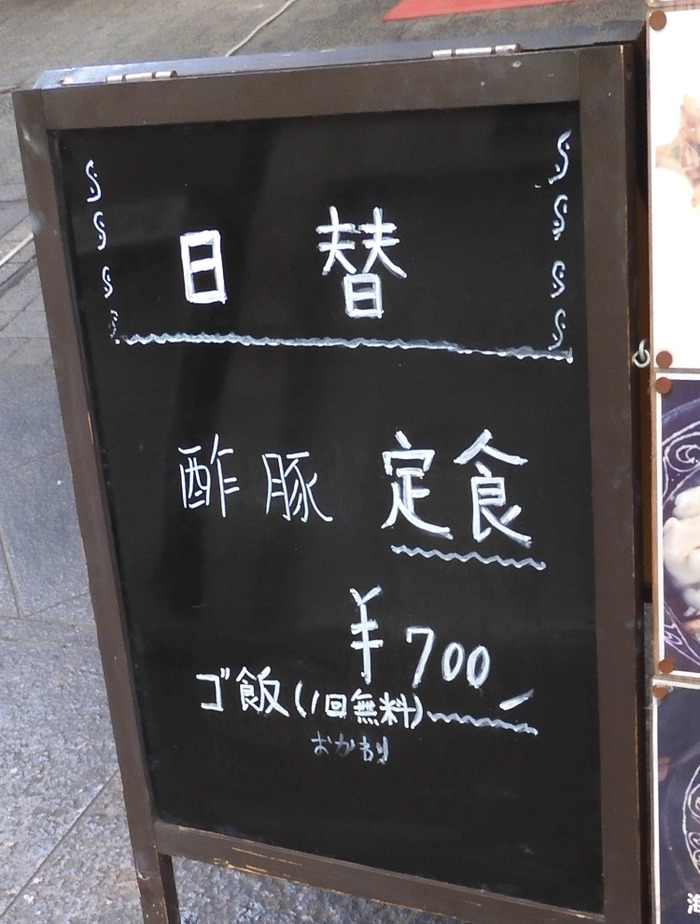 日替
酢豚定食
¥700
ゴ飯(1回無料)
おかわり